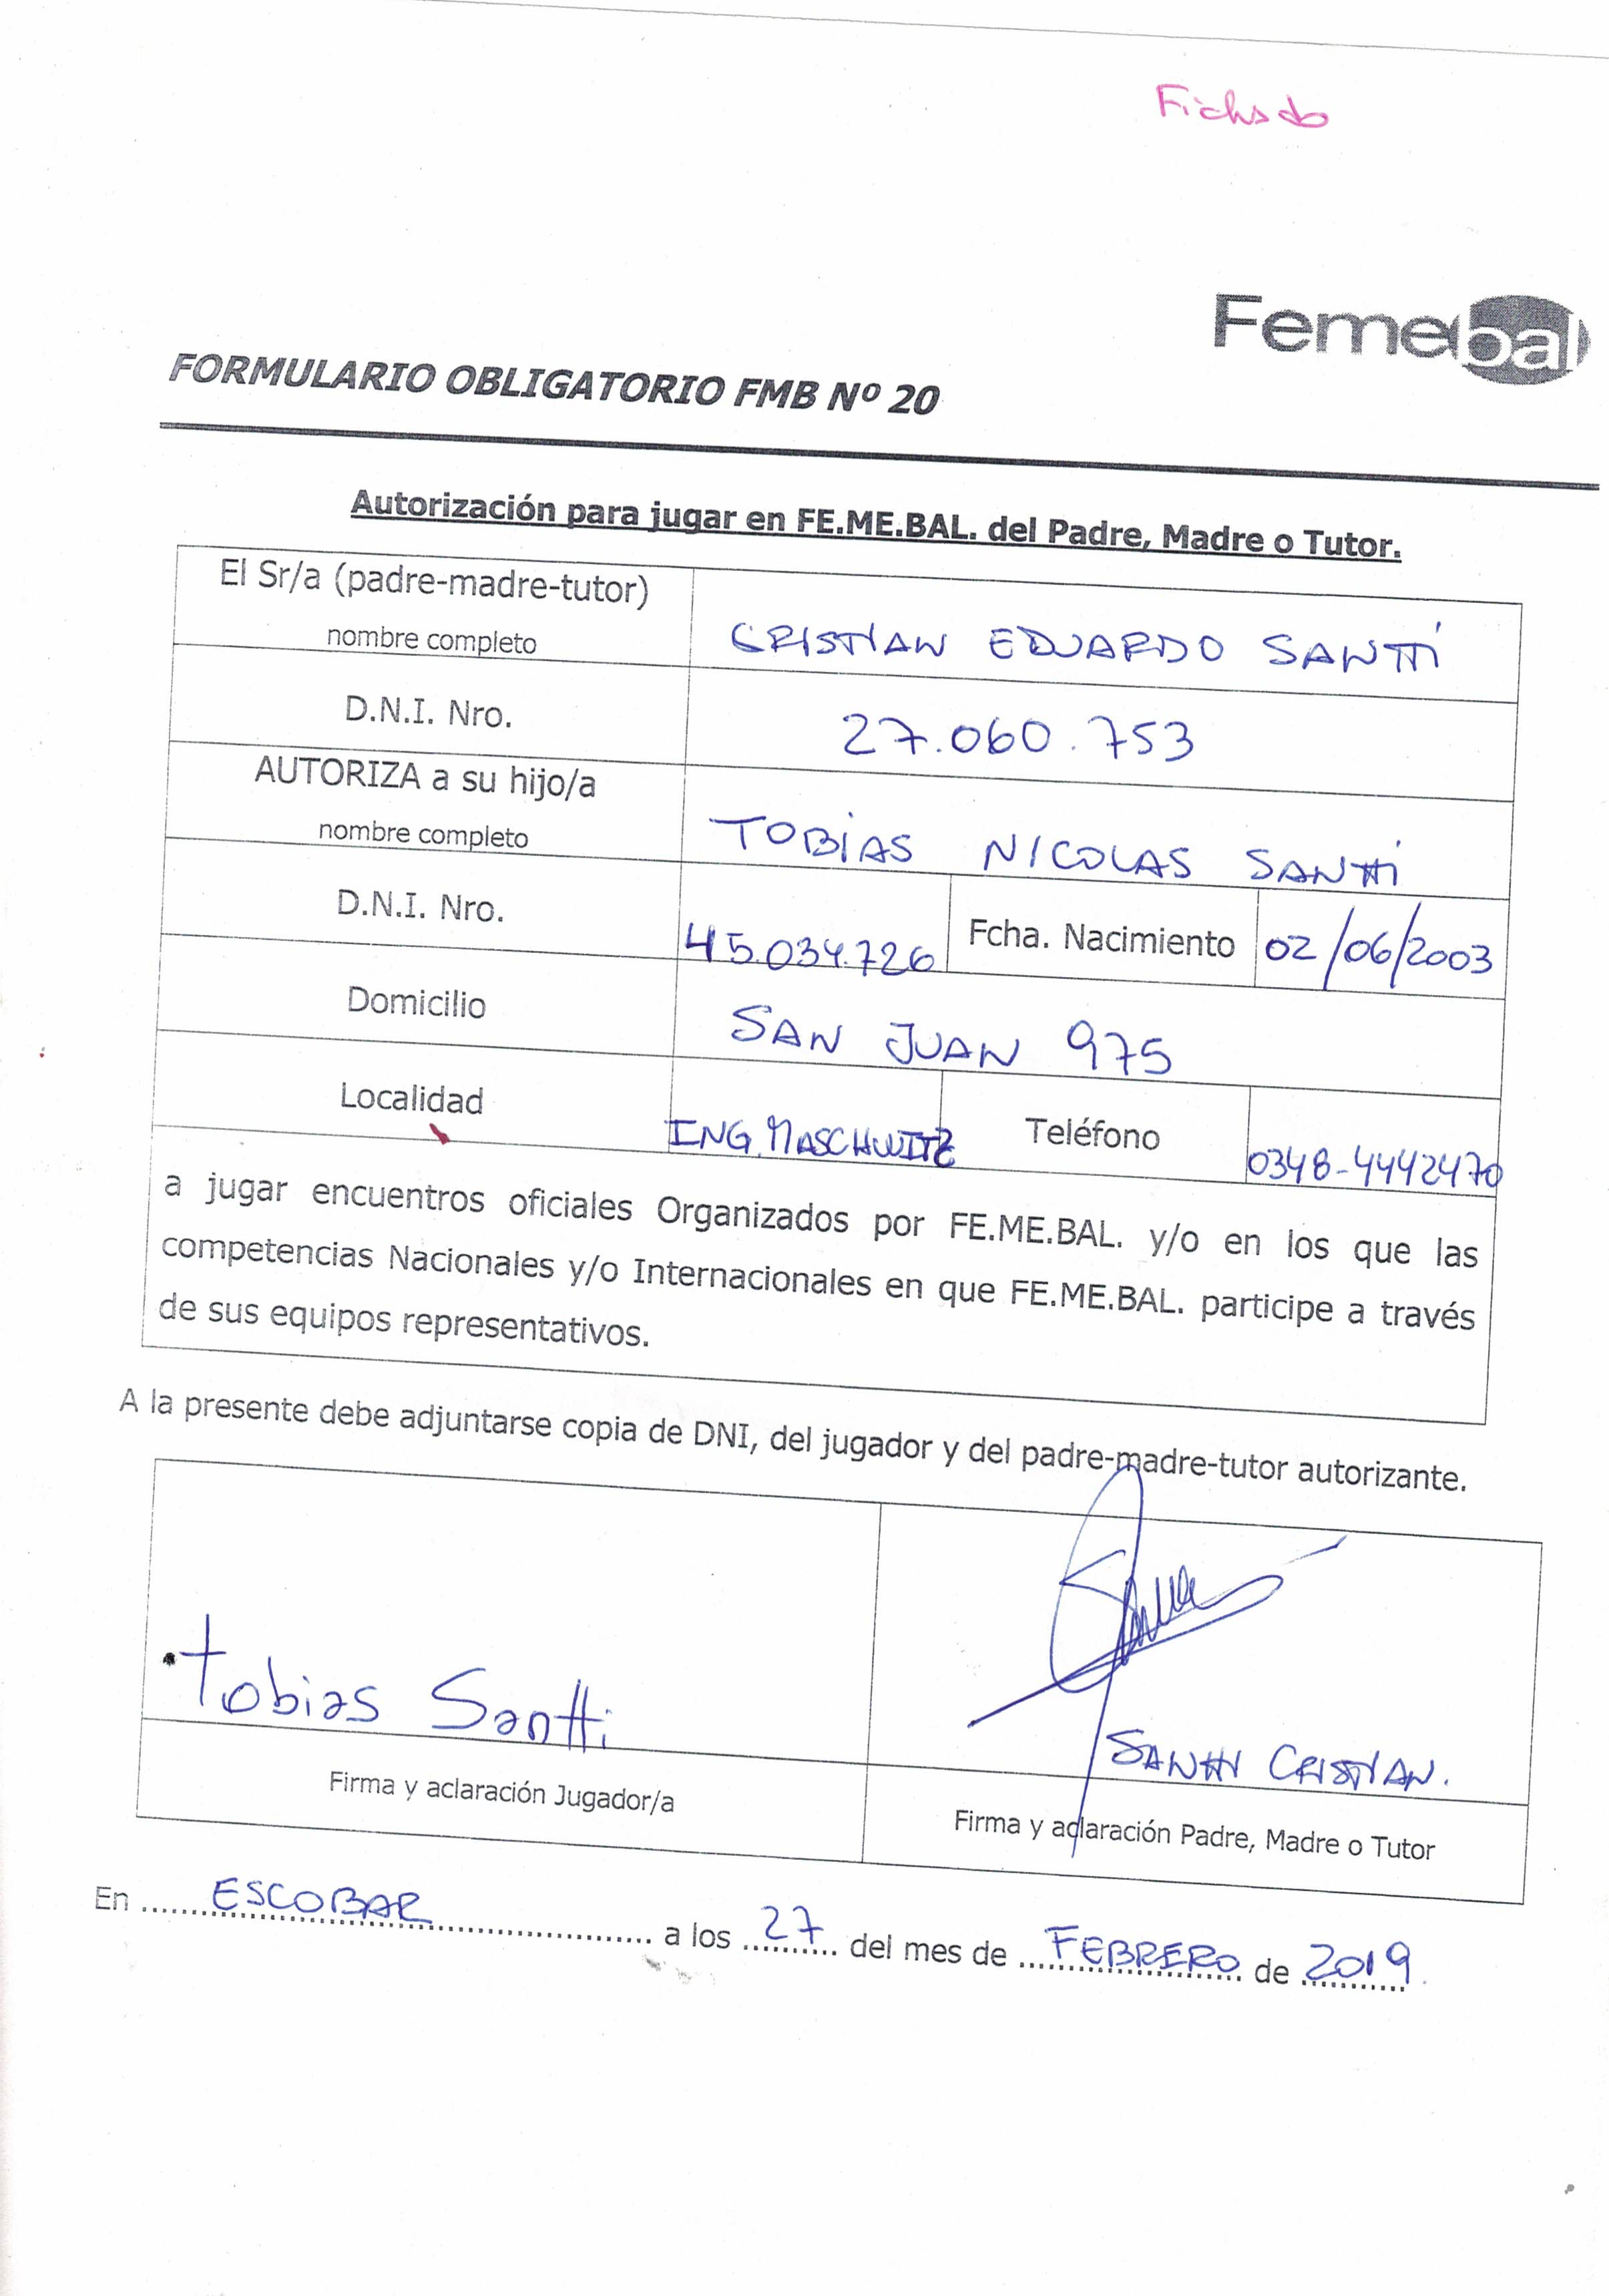 Fichado
Femebal
FORMULARIO OBLIGATORIO FMB Nº 20
Autorización para jugar en FE.ME.BAL. del Padre, Madre o Tutor.
El Sr/a (padre-madre-tutor)
nombre completo
CRISTIAN EDUARDO SANTTI
D.N.I. Nro.
27.060.753
AUTORIZA a su hijo/a
nombre completo
TOBIAS NICOLAS SANTTI
D.N.I. Nro.
45.034.726
Fcha. Nacimiento
02/06/2003
Domicilio
SAN JUAN 975
Localidad
ING. MASCHWITZ
Teléfono
0348-4442470
a jugar encuentros oficiales Organizados por FE.ME.BAL. y/o en los que las
competencias Nacionales y/o Internacionales en que FE.ME.BAL. participe a través
de sus equipos representativos.
A la presente debe adjuntarse copia de DNI, del jugador y del padre-madre-tutor autorizante.
Tobias Santti
SANTTI CRISTIAN.
Firma y aclaración Jugador/a
Firma y aclaración Padre, Madre o Tutor
En ESCOBAR a los 27 del mes de FEBRERO de 2019